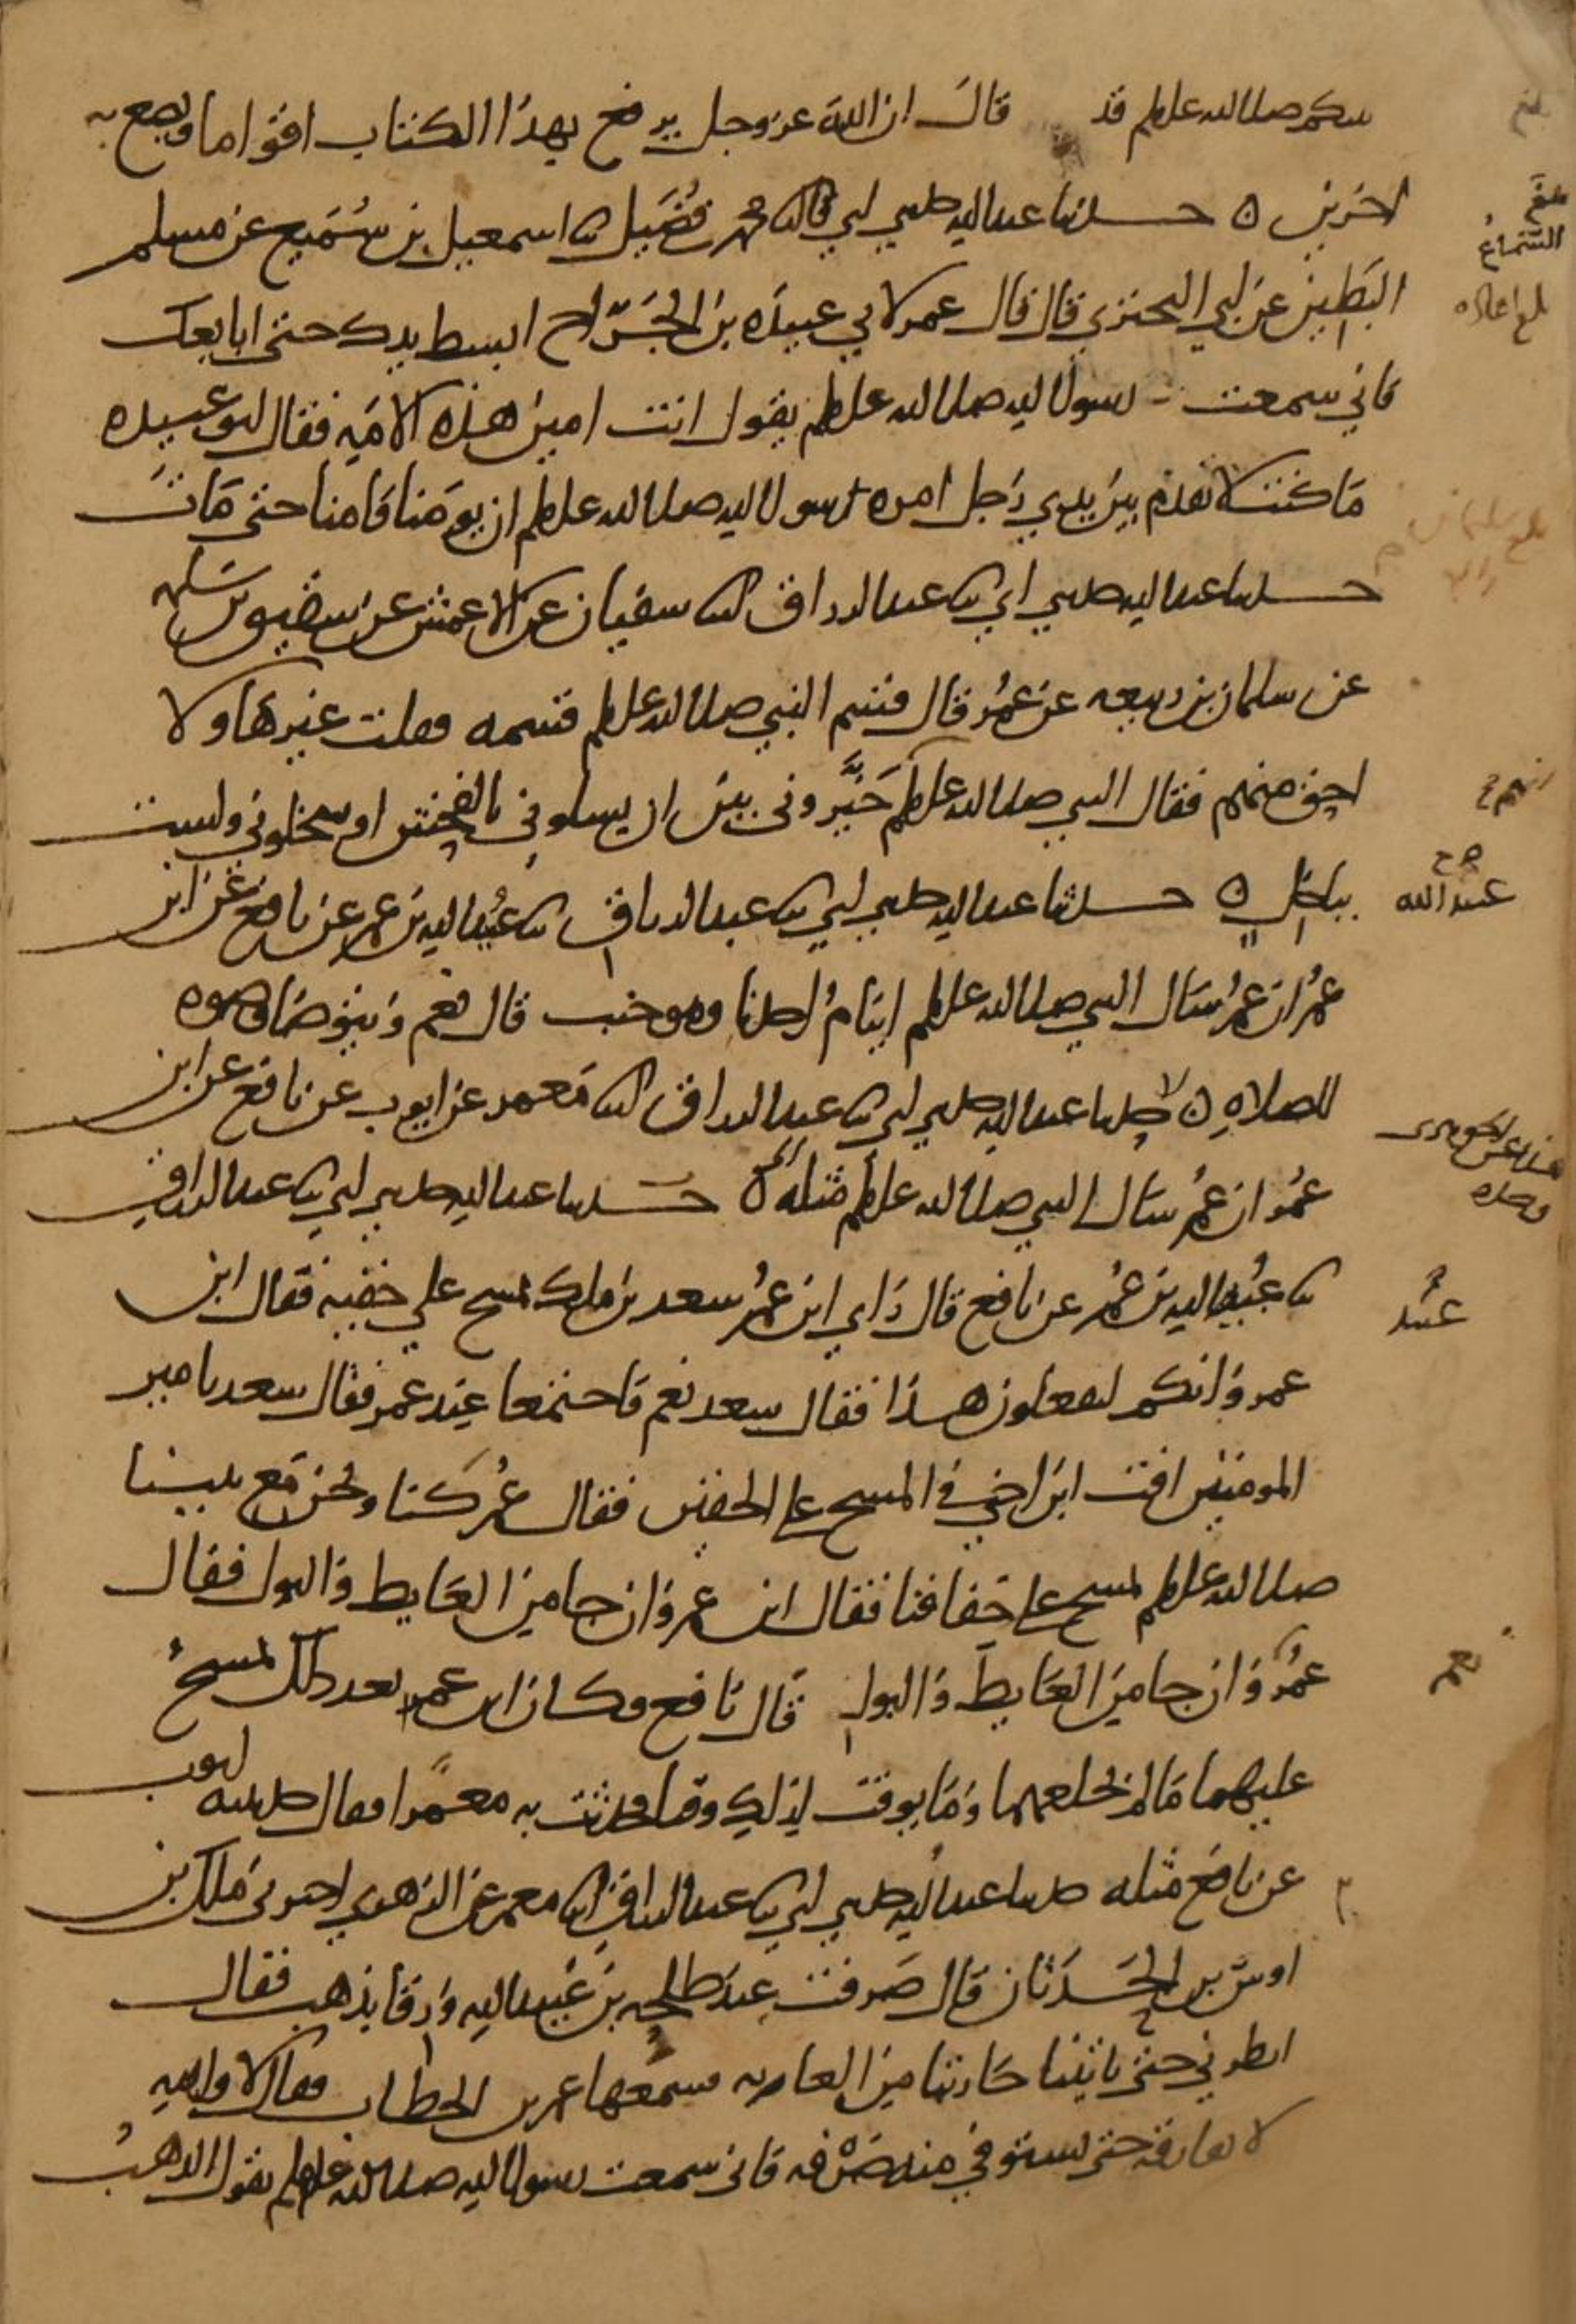 نبيكم صلى الله عليه وسلم قد قال ان الله عز وجل يرفع بهذا الكتاب اقواما ويضع به
اخرين ه حدثنا عبد الله حدثني ابي قال نا محمد بن فضيل نا اسمعيل بن سُمَيع عن مسلم
البَطِين عن ابي البختري قال قال عمر لابي عبيده بن الجَرَّاح ابسط يدك حتى ابايعك
فاني سمعت رسول الله صلى الله عليه وسلم يقول انت امين هذه الامة فقال ابو عبيده
ما كنت لاتقدم بين يدي رجل امره رسول الله صلى الله عليه وسلم ان يؤمنا فامنا حتى مات
حدثنا عبد الله حدثني ابي نا عبد الرزاق انا سفيان عن الاعمش عن شقيق بن سلمه
عن سلمان بن ربيعه عن عمر قال قسم النبي صلى الله عليه وسلم قسمه فقلت غيرها ولا
احق منهم فقال النبي صلى الله عليه وسلم خيَّروني بين ان يسلوني بالفحش او يبخلوني ولست
بباخل ه حدثنا عبد الله حدثني ابي نا عبد الرزاق نا عُبيد الله بن عمر عن نافع عن ابن
عمر ان عمر سال النبي صلى الله عليه وسلم اينام احدنا وهو جنب قال نعم ويتوضا وضوه
للصلاة ه حدثنا عبد الله حدثني ابي نا عبد الرزاق انا معمر عن ايوب عن نافع عن ابن
عمر ان عمر سال النبي صلى الله عليه وسلم مثله ه حدثنا عبد الله حدثني ابي نا عبد الرزاق
نا عُبيد الله بن عمر عن نافع قال راي ابن عمر سعد بن ملك يمسح علي خفيه فقال ابن
عمر وانكم لتفعلون هذا فقال سعد نعم فاجتمعا عند عمر فقال سعد يامير
المومنين افت ابن اخي في المسح على الخفين فقال عمر كنا ونحن مع نبينا
صلى الله عليه وسلم نمسح على خفافنا فقال ابن عمر وان جا من الغايط والبول فقال
عمر وان جا من الغايط والبول قال نافع وكان ابن عمر بعد ذلك يمسح
عليهما مالم يخلعهما وما يوقت لذلك وقتا فحدثت به معمرا فقال حدثنيه ايوب
عن نافع مثله حدثنا عبد الله حدثني ابي نا عبد الرزاق انا معمر عن الزهري اخبرني ملك بن
اوس بن الحَدَثان قال صرفت عند طلحه بن عُبيد الله ورقا بذهب فقال
انظرني حتى ياتينا خازننا من الغابه فسمعها عمر بن الخطاب فقال لا والله
لا تفارقه حتى تستوفي منه صرفه فاني سمعت رسول الله صلى الله عليه وسلم يقول الذهب
بلغ
السماع
صح
عبد الله
وحده
عبد
نعم